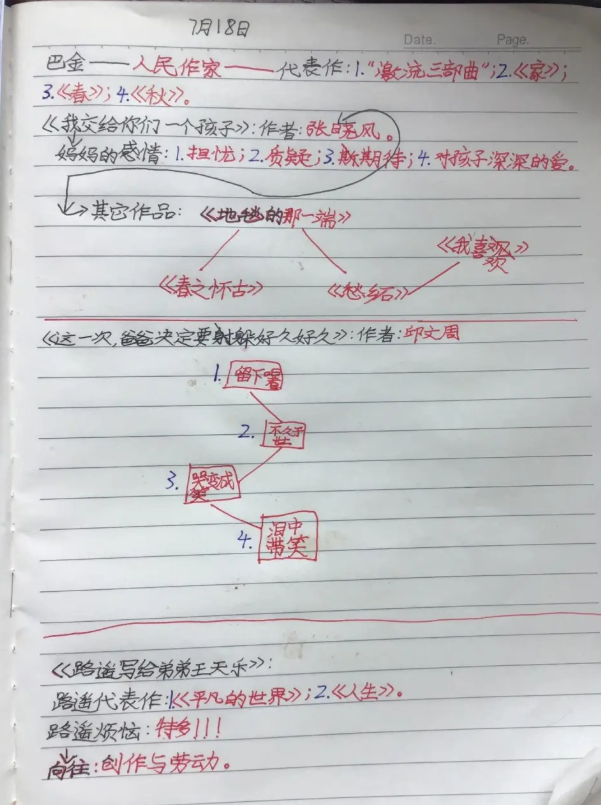 7月18日
Date. Page.
巴金——人民作家——代表作:1.“激流三部曲”;2.《家》;
3.《春》;4.《秋》。
《我交给你们一个孩子》:作者:张晓风。
妈妈的感情:1.担忧;2.质疑;3.期待;4.对孩子深深的爱。
其它作品:《地毯的那一端》
《我喜欢》
《春之怀古》 《愁乡石》
《这一次,爸爸决定要躲好久好久》:作者:邱文周
1. 留下
2.
3. 哭变成笑
4. 泪中带笑
《路遥写给弟弟王天乐》:
路遥代表作:1.《平凡的世界》;2.《人生》。
路遥烦恼:特多!!!
向往:创作与劳动。